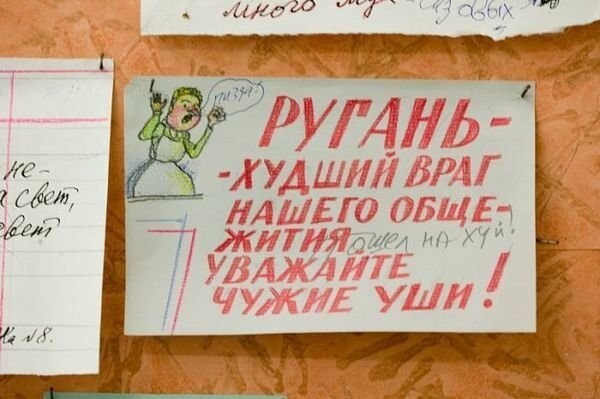 много му
не-
свет,
свет
№8.
ПИЗДА!
РУГАНЬ -
- ХУДШИЙ ВРАГ
НАШЕГО ОБЩЕ-
ЖИТИЯ
пошел НА ХУЙ!
УВАЖАЙТЕ
ЧУЖИЕ УШИ!